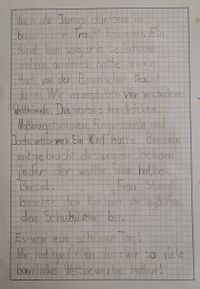 Auch die Jungs durften in
bayrischer Tracht kommen. Ein
Kind kam sogar in Lederhose
und ein anderes hatte einen
Hut von der Bayrischen Tracht
dabei. Wir veranstalteten vier verschiedene
Wettkämpfe. Das waren: Armdrücken,
Maßkrug stemmen, Fingerhakeln und
Jodelwettbewerb. Ein Kind hatte Brezeln
mitgebracht deswegen bekam
jeder der wollte eine halbe
Brezel. Frau Stangl
brachte den Kindern die
den Schuhplattler bei.
Es war ein schöner Tag!
Mir hat gefallen das wir so viele
bayrische Wettbewerbe hatten!